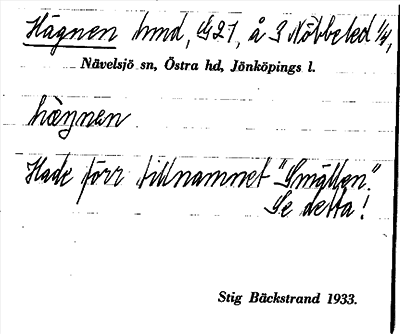 Hägnen hmd, G21, å 3 Nöbbeled 1/4,
Nävelsjö sn, Östra hd, Jönköpings l.
hägnen
Hade förr tillnamnet "Smällen".
Se detta!
Stig Bäckstrand 1933.